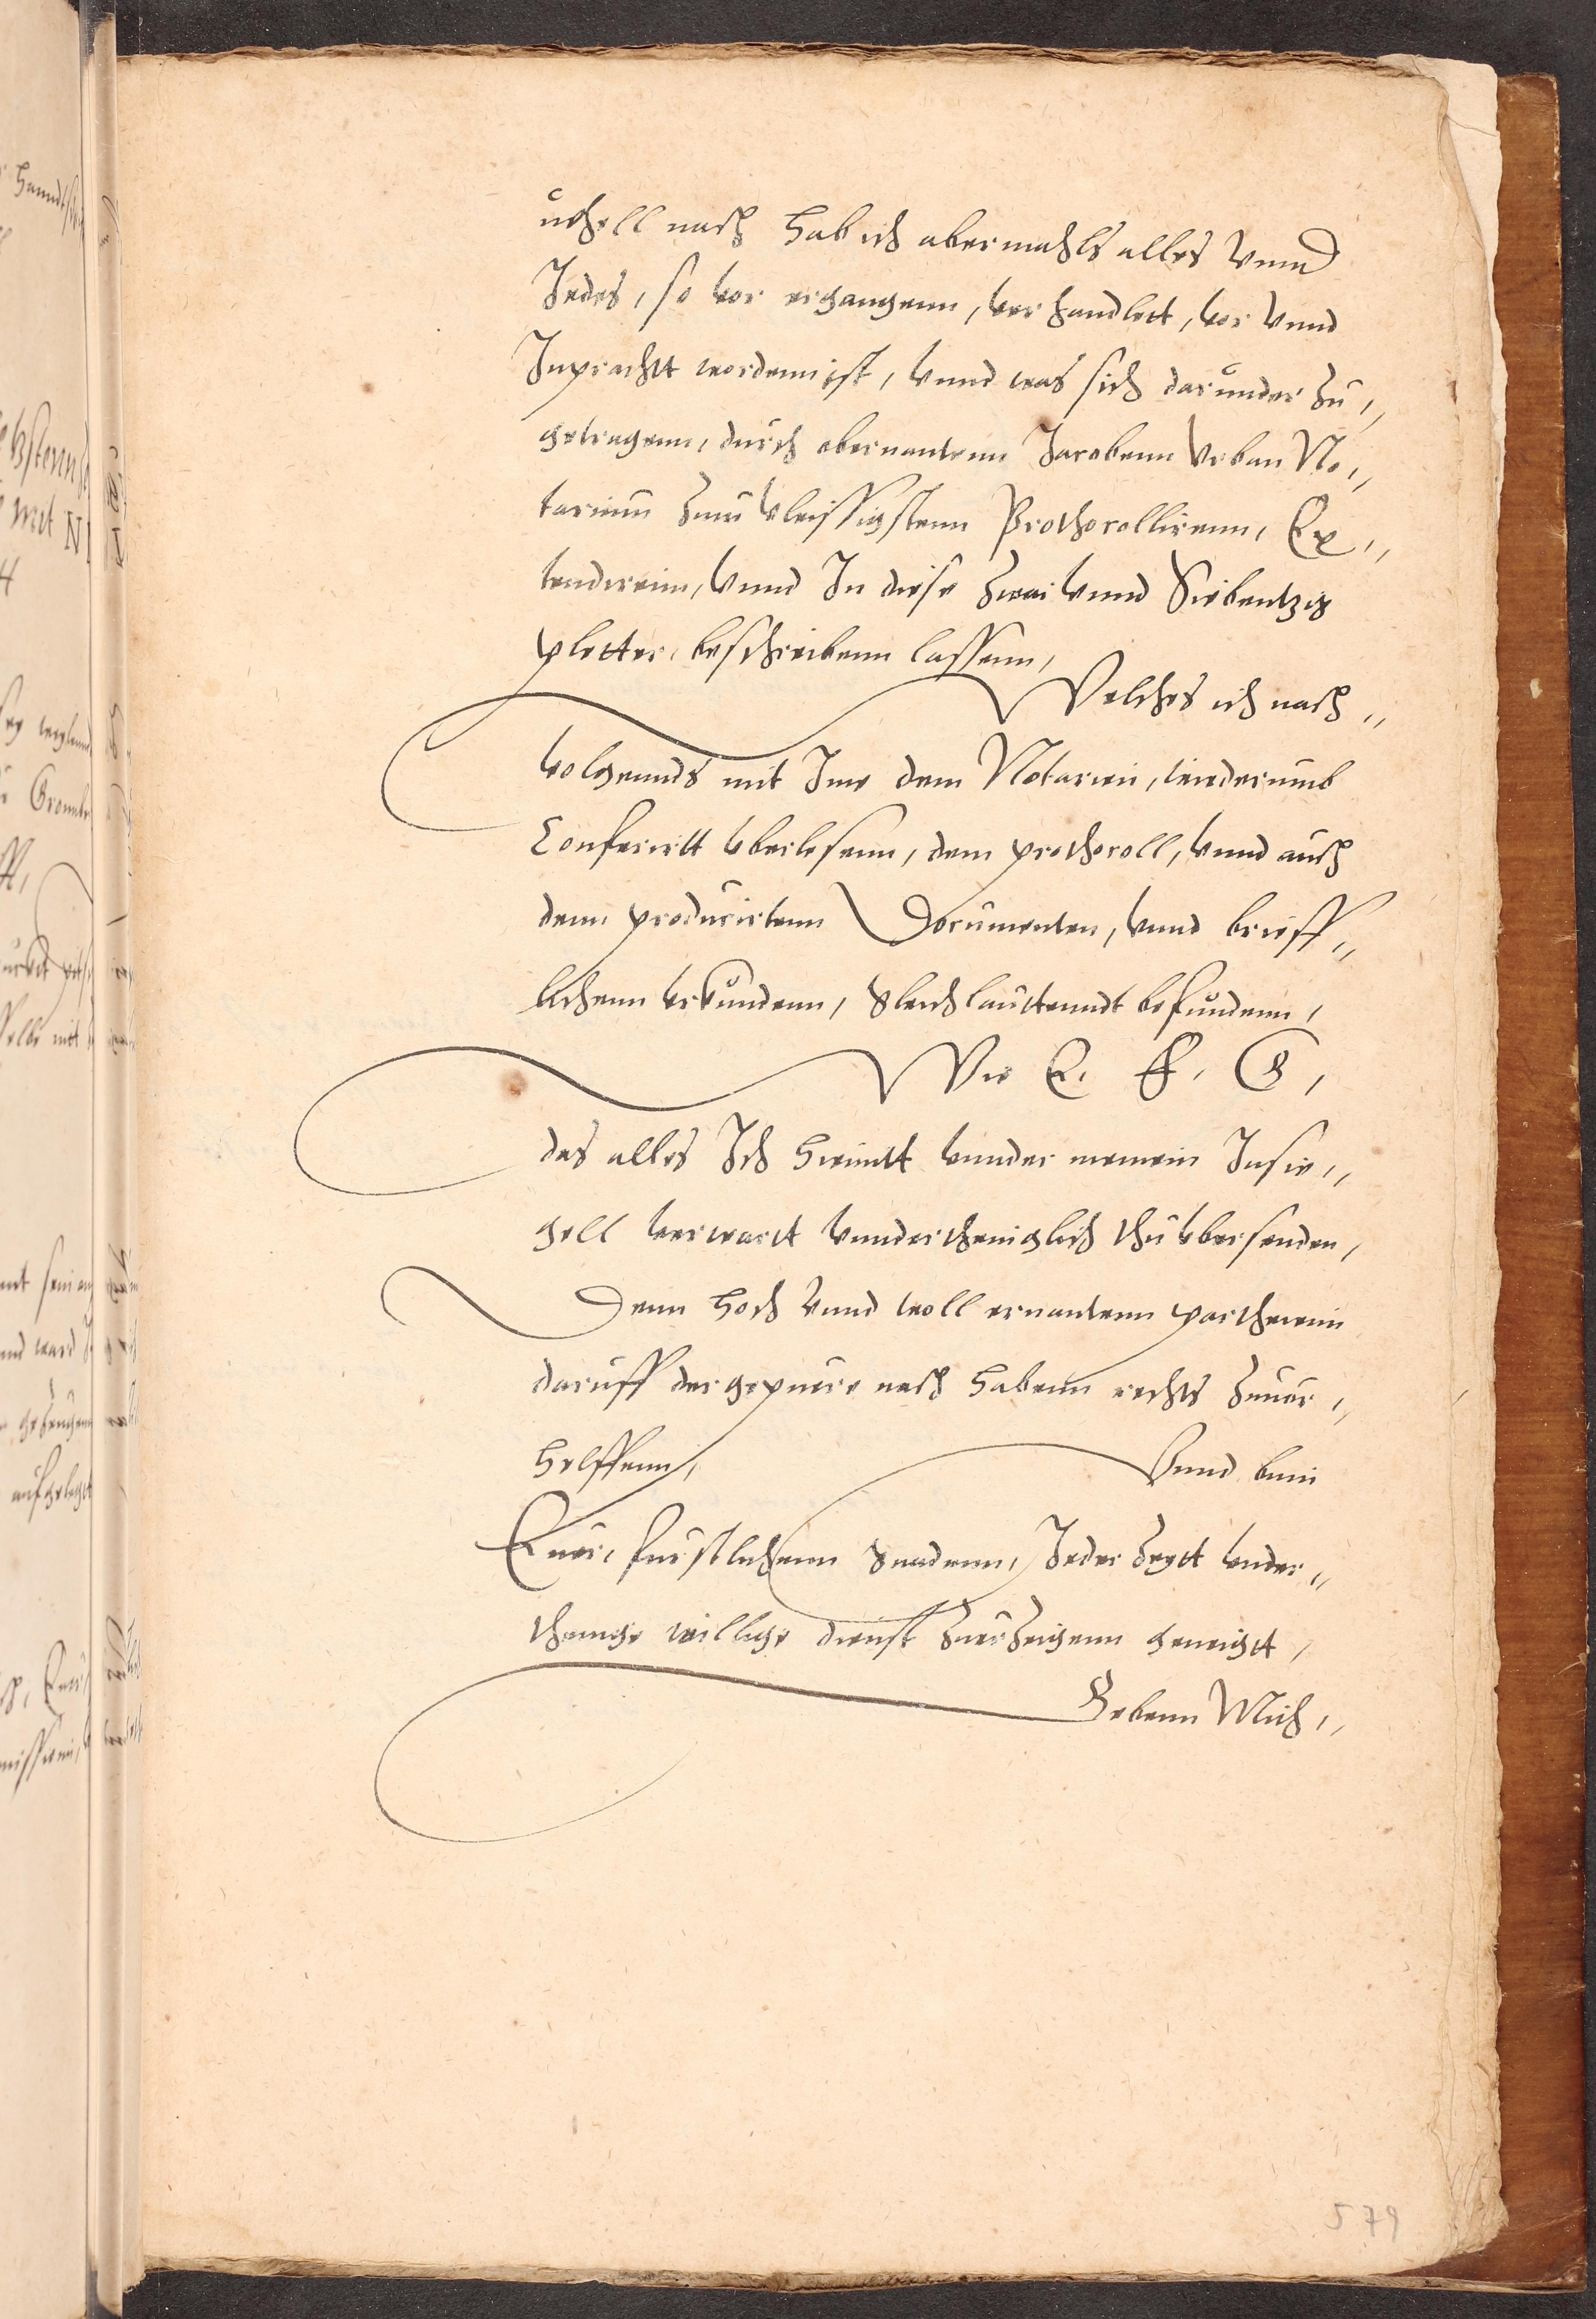 uthell nach hab ich abermahls alles vnnd
Jedes, so vor ergangenn, verhandlett, vor vnnd
Inprachtt wordenn ist, vnnd was sich darunder zu,,
getragenn, durch obernantenn Jacobenn Vrban No,,
tarium zum vleissigstenn Prothocollirenn, Ex,,
tendirenn, vnnd In diese zwai vnnd Siebentzig
pletter, beschreibenn lassenn,
Welches ich nach,,
volgennds mit Ime dem Notarien, wiederumb
Conferirtt vberlesenn, dem prothocoll, vnnd auch
denn producirtenn Documenten, vnnd brieff,,
lichenn vrkundenn, gleichlauttenndt befundenn,
Wie E. F. G,
das alles Ich hiemitt vnnder meinem Insie,,
gell verwartt vnndertheniglich thu vbersenden,
Denn hoch vnnd woll ernantenn partheienn
daruff der gepuere nach habenn rechts zuuer,,
helffenn,
Vnnd binn
Euer, furstlichenn gnadenn, Jeder Zeytt vnder,,
thenige willige dienst zuerzeigenn geneigtt,
Gebenn Mich,,
579